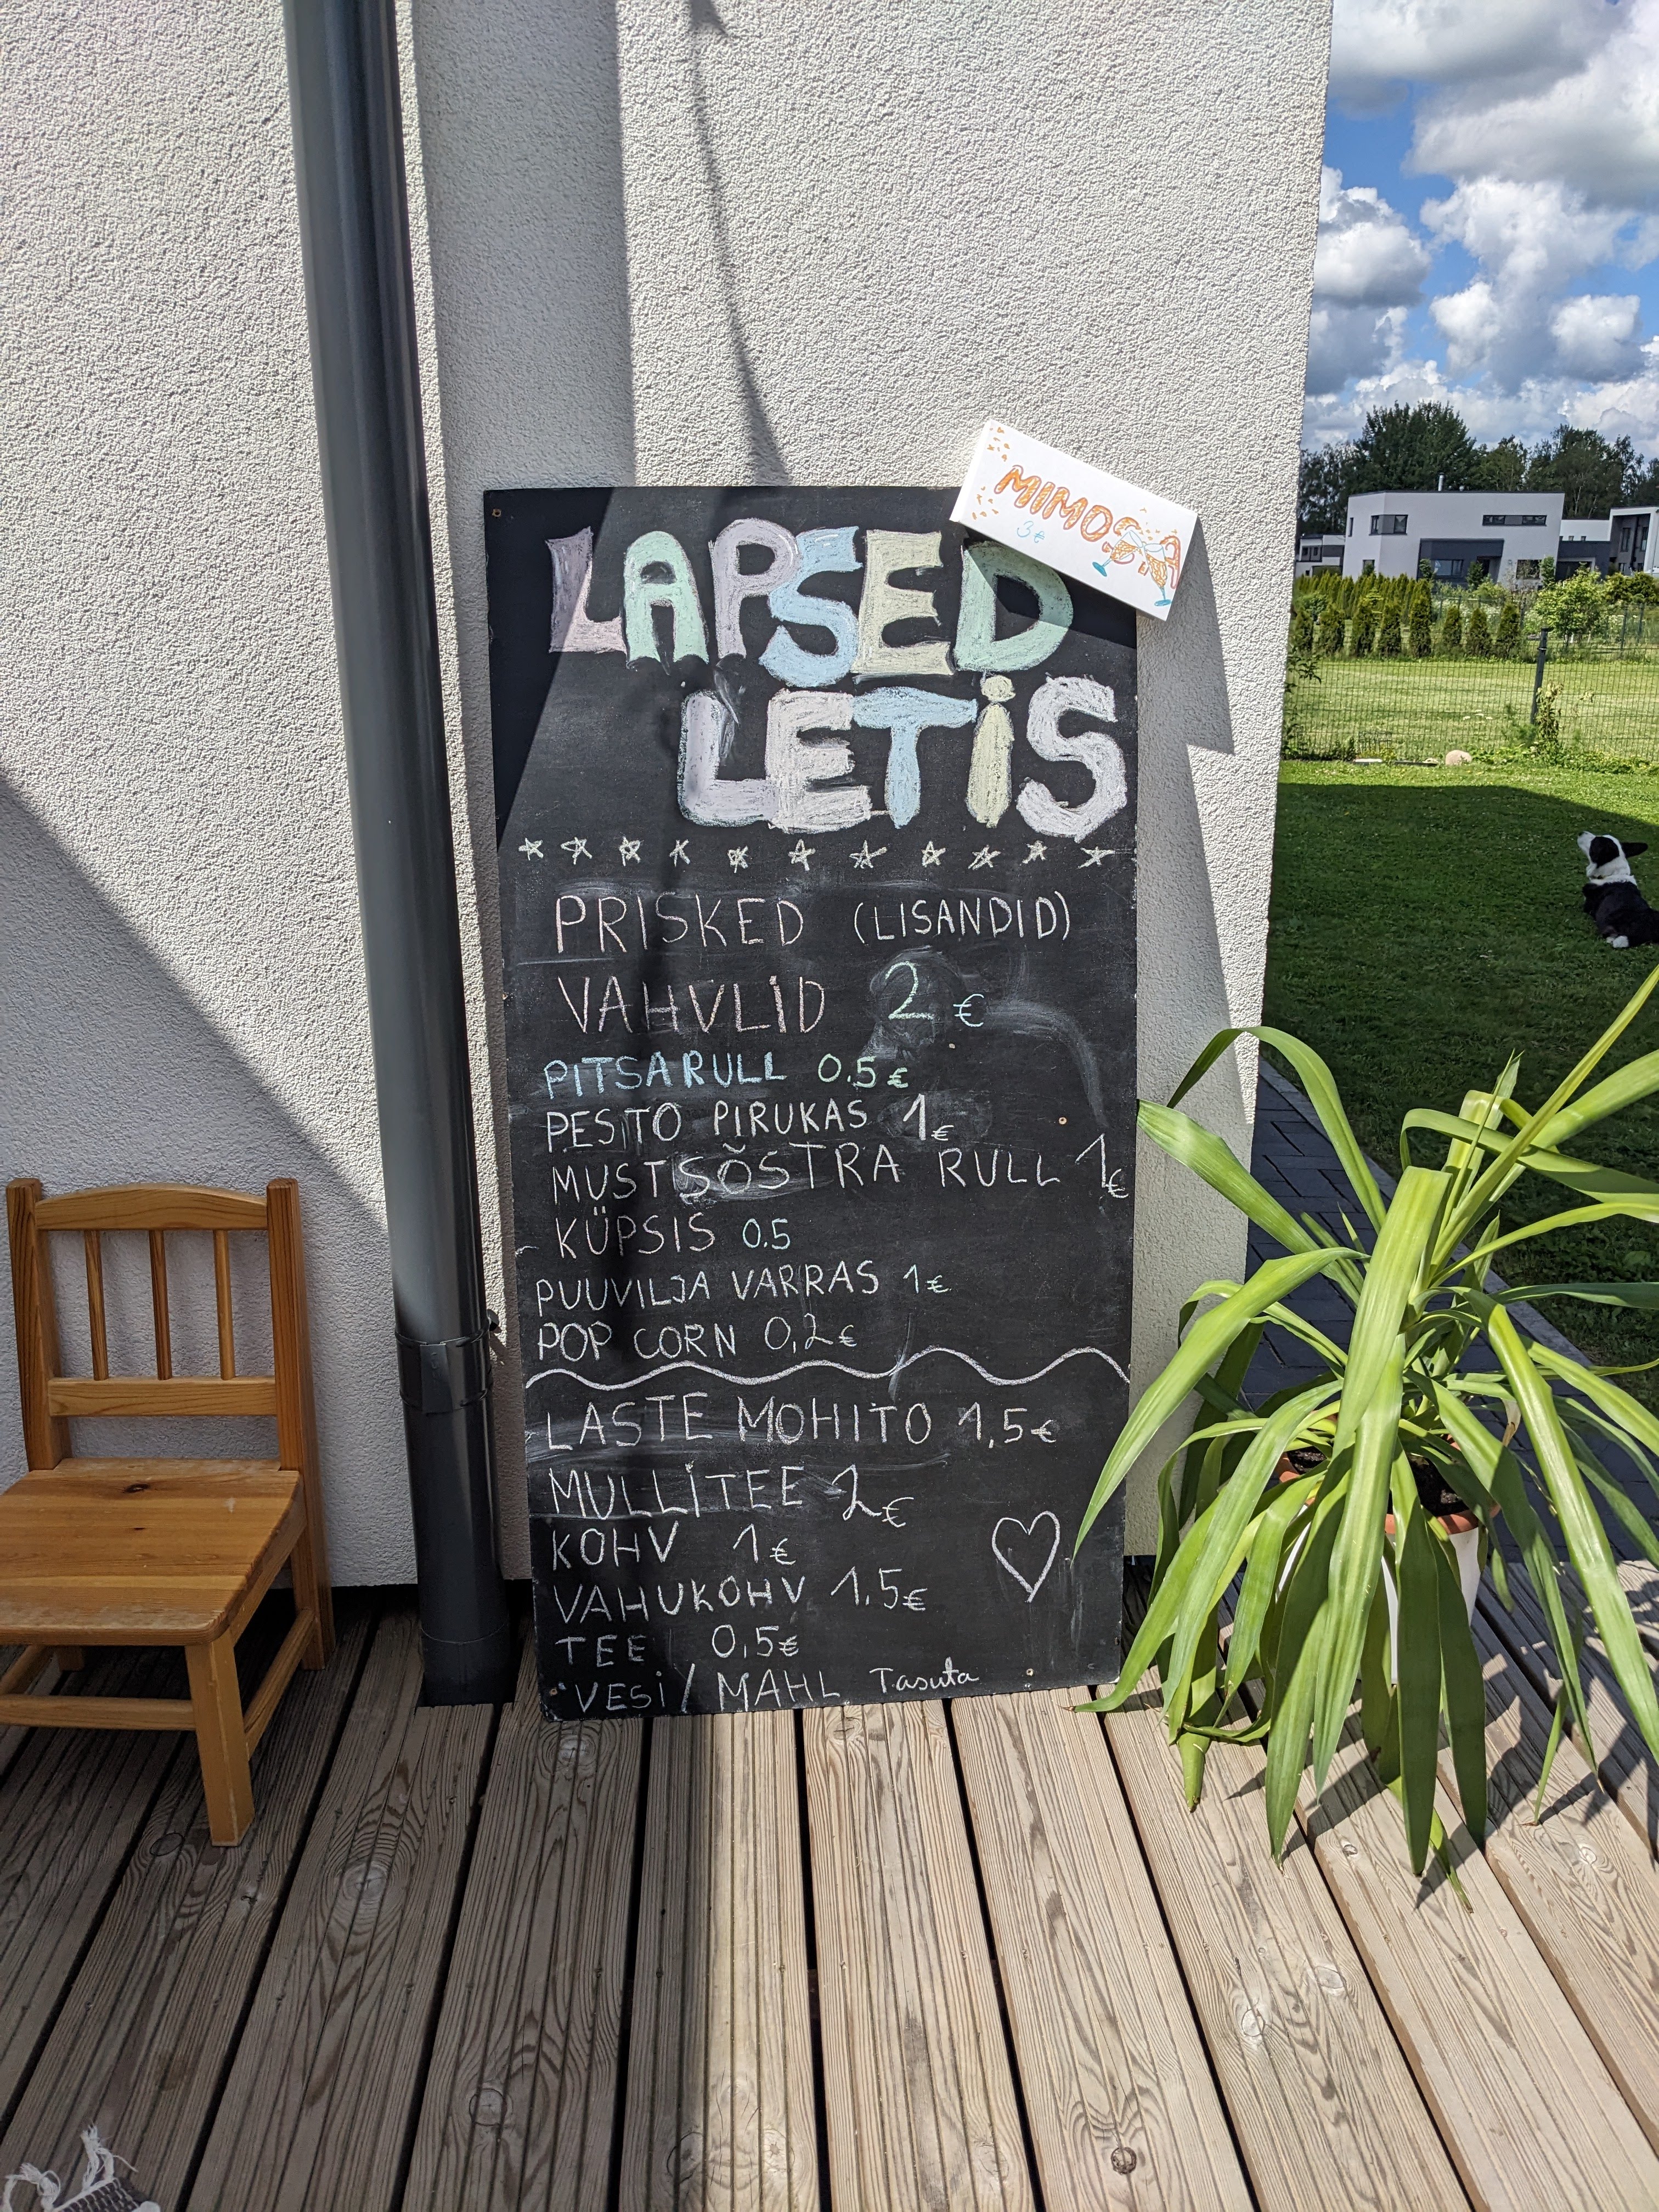 MIMOSA
3€
LAPSED
LETIS
PRISKED (LISANDID)
VAHVLID 2 €
PITSARULL 0.5€
PESTO PIRUKAS 1€
MUSTSÕSTRA RULL 1€
KÜPSIS 0.5
PUUVILJA VARRAS 1€
POP CORN 0,2€
LASTE MOHITO 1,5€
MULLITEE 2€
KOHV 1€
VAHUKOHV 1,5€
TEE 0,5€
VESI / MAHL Tasuta